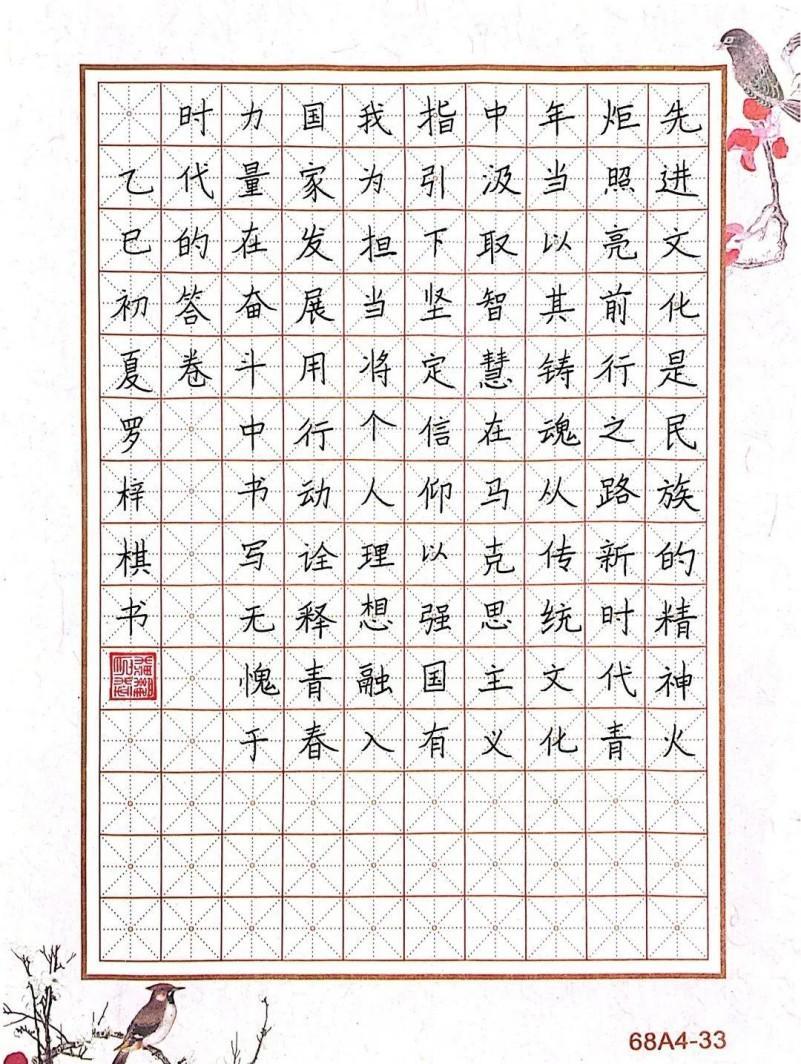 先进文化是民族的精神火
炬照亮前行之路新时代青
年当以其铸魂从传统文化
中汲取智慧在马克思主义
指引下坚定信仰以强国有
我为担当将个人理想融入
国家发展用行动诠释青春
力量在奋斗中书写无愧于
时代的答卷
乙巳初夏罗梓棋书
68A4-33